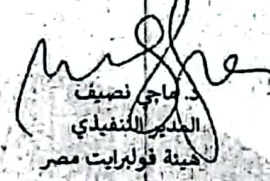 د. ماجي نصيف
المدير التنفيذي
هيئة فولبرايت مصر